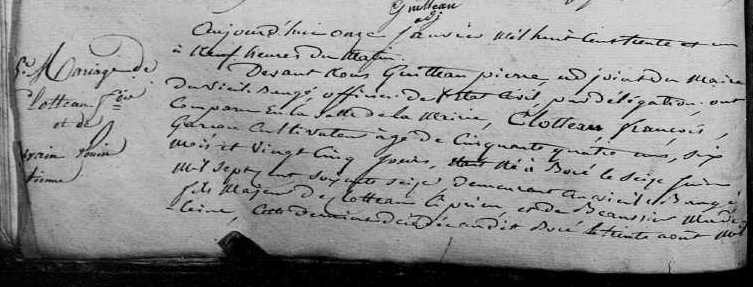 Guitteau
adj
Aujourd'hui onze Janvier mil huit cent trente et un
à Neuf heures du Matin.
Devant Nous Guitteau pierre, adjoint du Maire
du Vieil Baugé, officier de l'Etat Civil, par délégation, ont
Comparu En la Salle de la Mairie, Clotteau françois,
Garçon Cultivateur âgé de Cinquante quatre ans, six
Mois et Vingt Cinq Jours, Né à Bocé le Seize Juin
Mil Sept cent soixante seize demeurant au vieil Baugé,
fils Majeur de Clotteau et de Beaussier Made-
-leine, Cette Derniere décédée audit Bocé le trente aout Mil
Mariage de
Clotteau fçois
et de